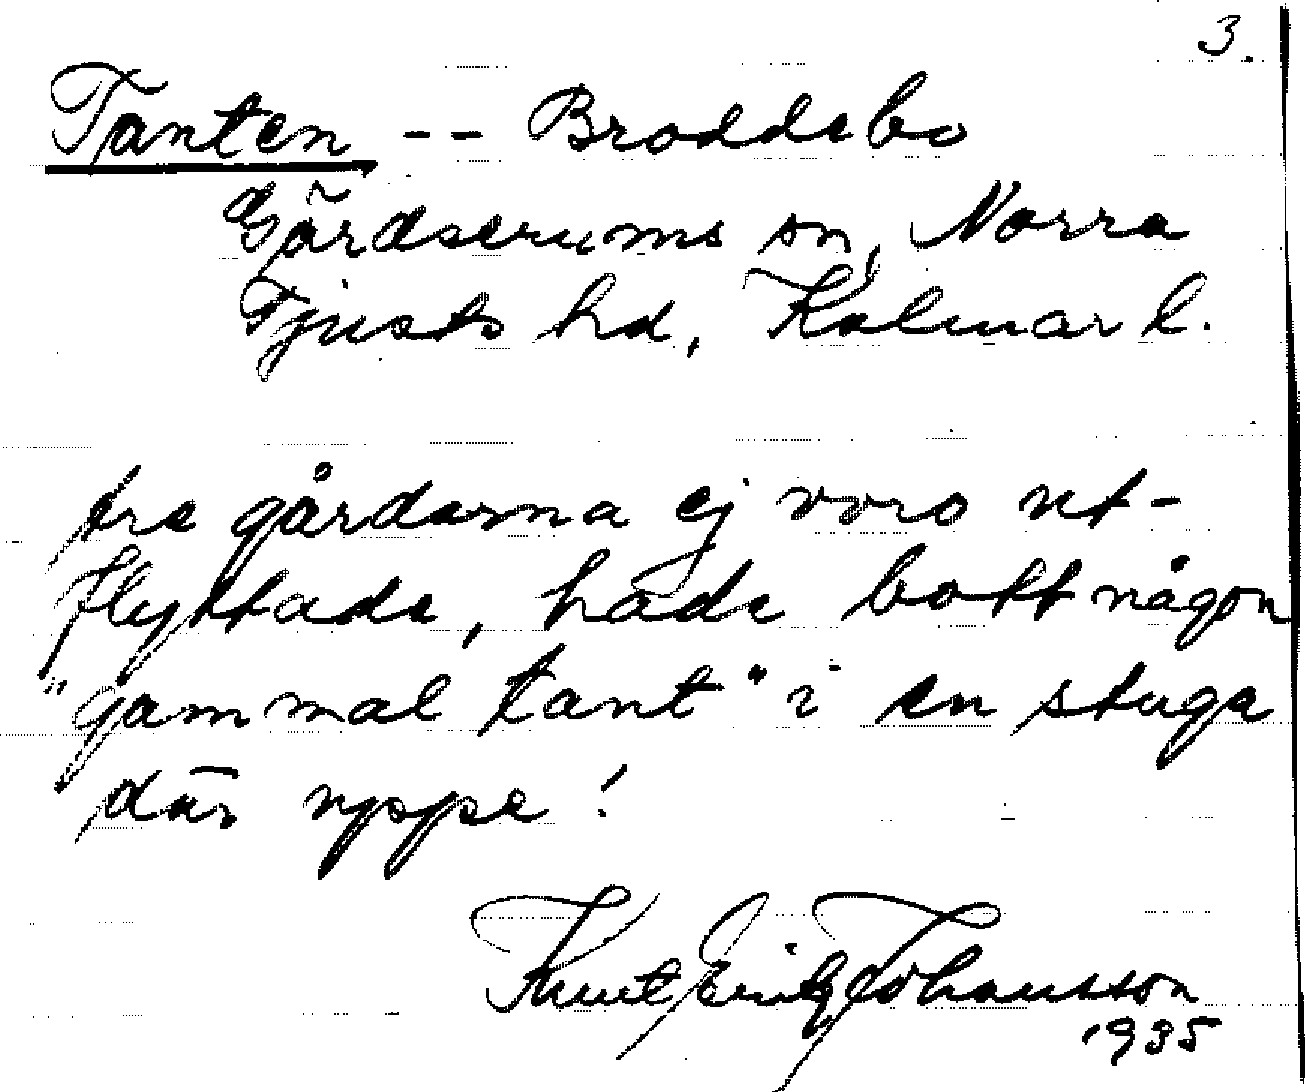 3.
Tanten -- Broddebo
Gärdserums sn, Norra
Tjusts hd, Kalmar l.
tre gårdarna ej voro ut-
flyttade, hade bott någon
"gammal tant" i en stuga
där uppe!
Knut Erik Johansson
1935